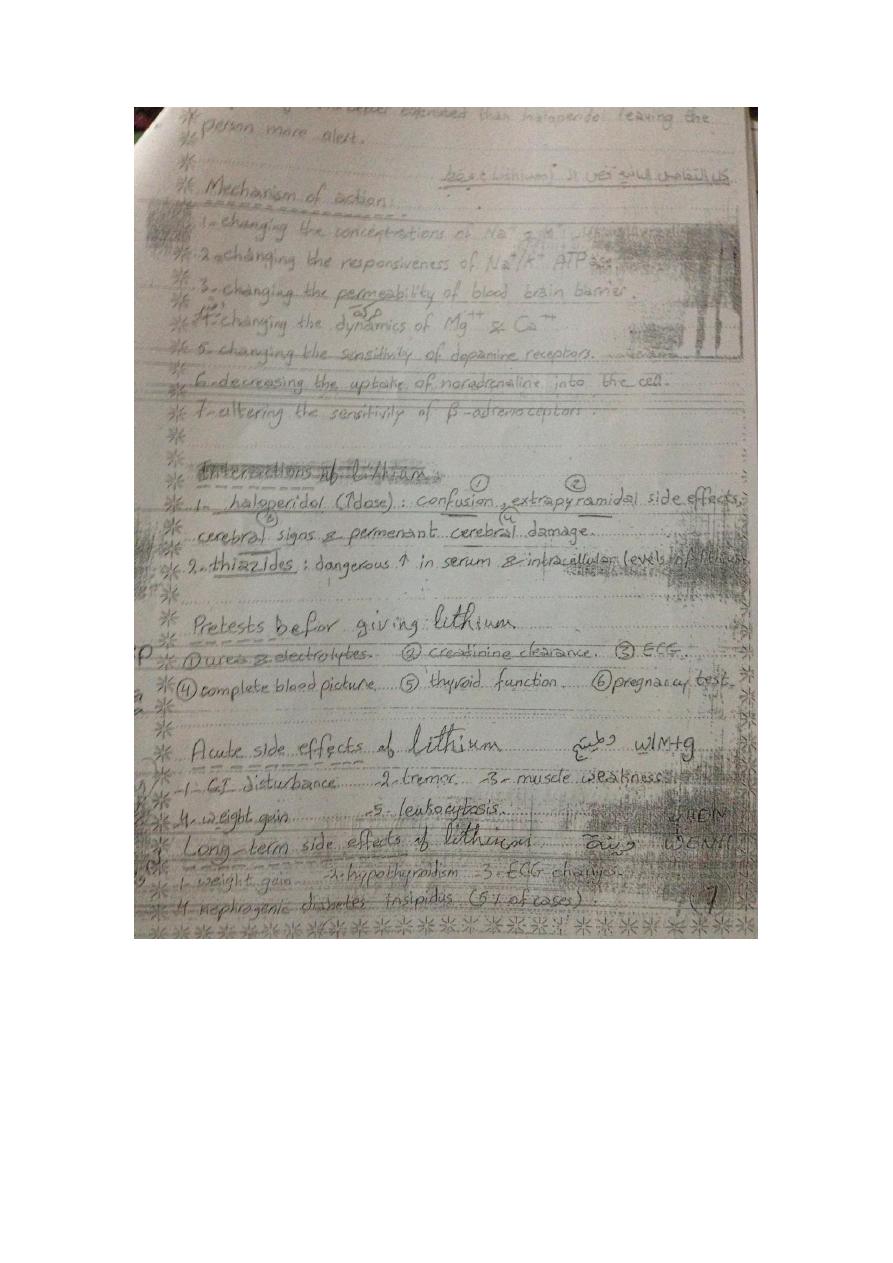 than haloperidol leaving the
person more alert.
كل التفاصيل الـ (Lithium) فقط
Mechanism of action:
1- changing the concentrations of Na⁺ &
2- changing the responsiveness of Na⁺/K⁺ ATPase
3- changing the permeability of blood brain barrier.
4- changing the dynamics of Mg⁺⁺ & Ca⁺⁺
5- changing the sensitivity of dopamine receptors.
6- decreasing the uptake of noradrenaline into the cell.
7- altering the sensitivity of β-adrenoceptors.
Interactions of lithium:
① ②
1- haloperidol (↑dose): confusion, extrapyramidal side effects,
③ ④
cerebral signs & permenant cerebral damage.
2- thiazides: dangerous ↑ in serum & intracellular levels of lithium
Pretests befor giving lithium
① urea & electrolytes. ② creatinine clearance. ③ ECG.
④ complete blood picture ⑤ thyroid function. ⑥ pregnancy test.
Acute side effects of lithium
1- GI disturbance 2- tremor. 3- muscle weakness
4- weight gain 5- leukocytosis.
Long-term side effects of lithium
1- weight gain 2- hypothyroidism 3- ECG changes.
4- nephrogenic diabetes insipidus (5% of cases).
7